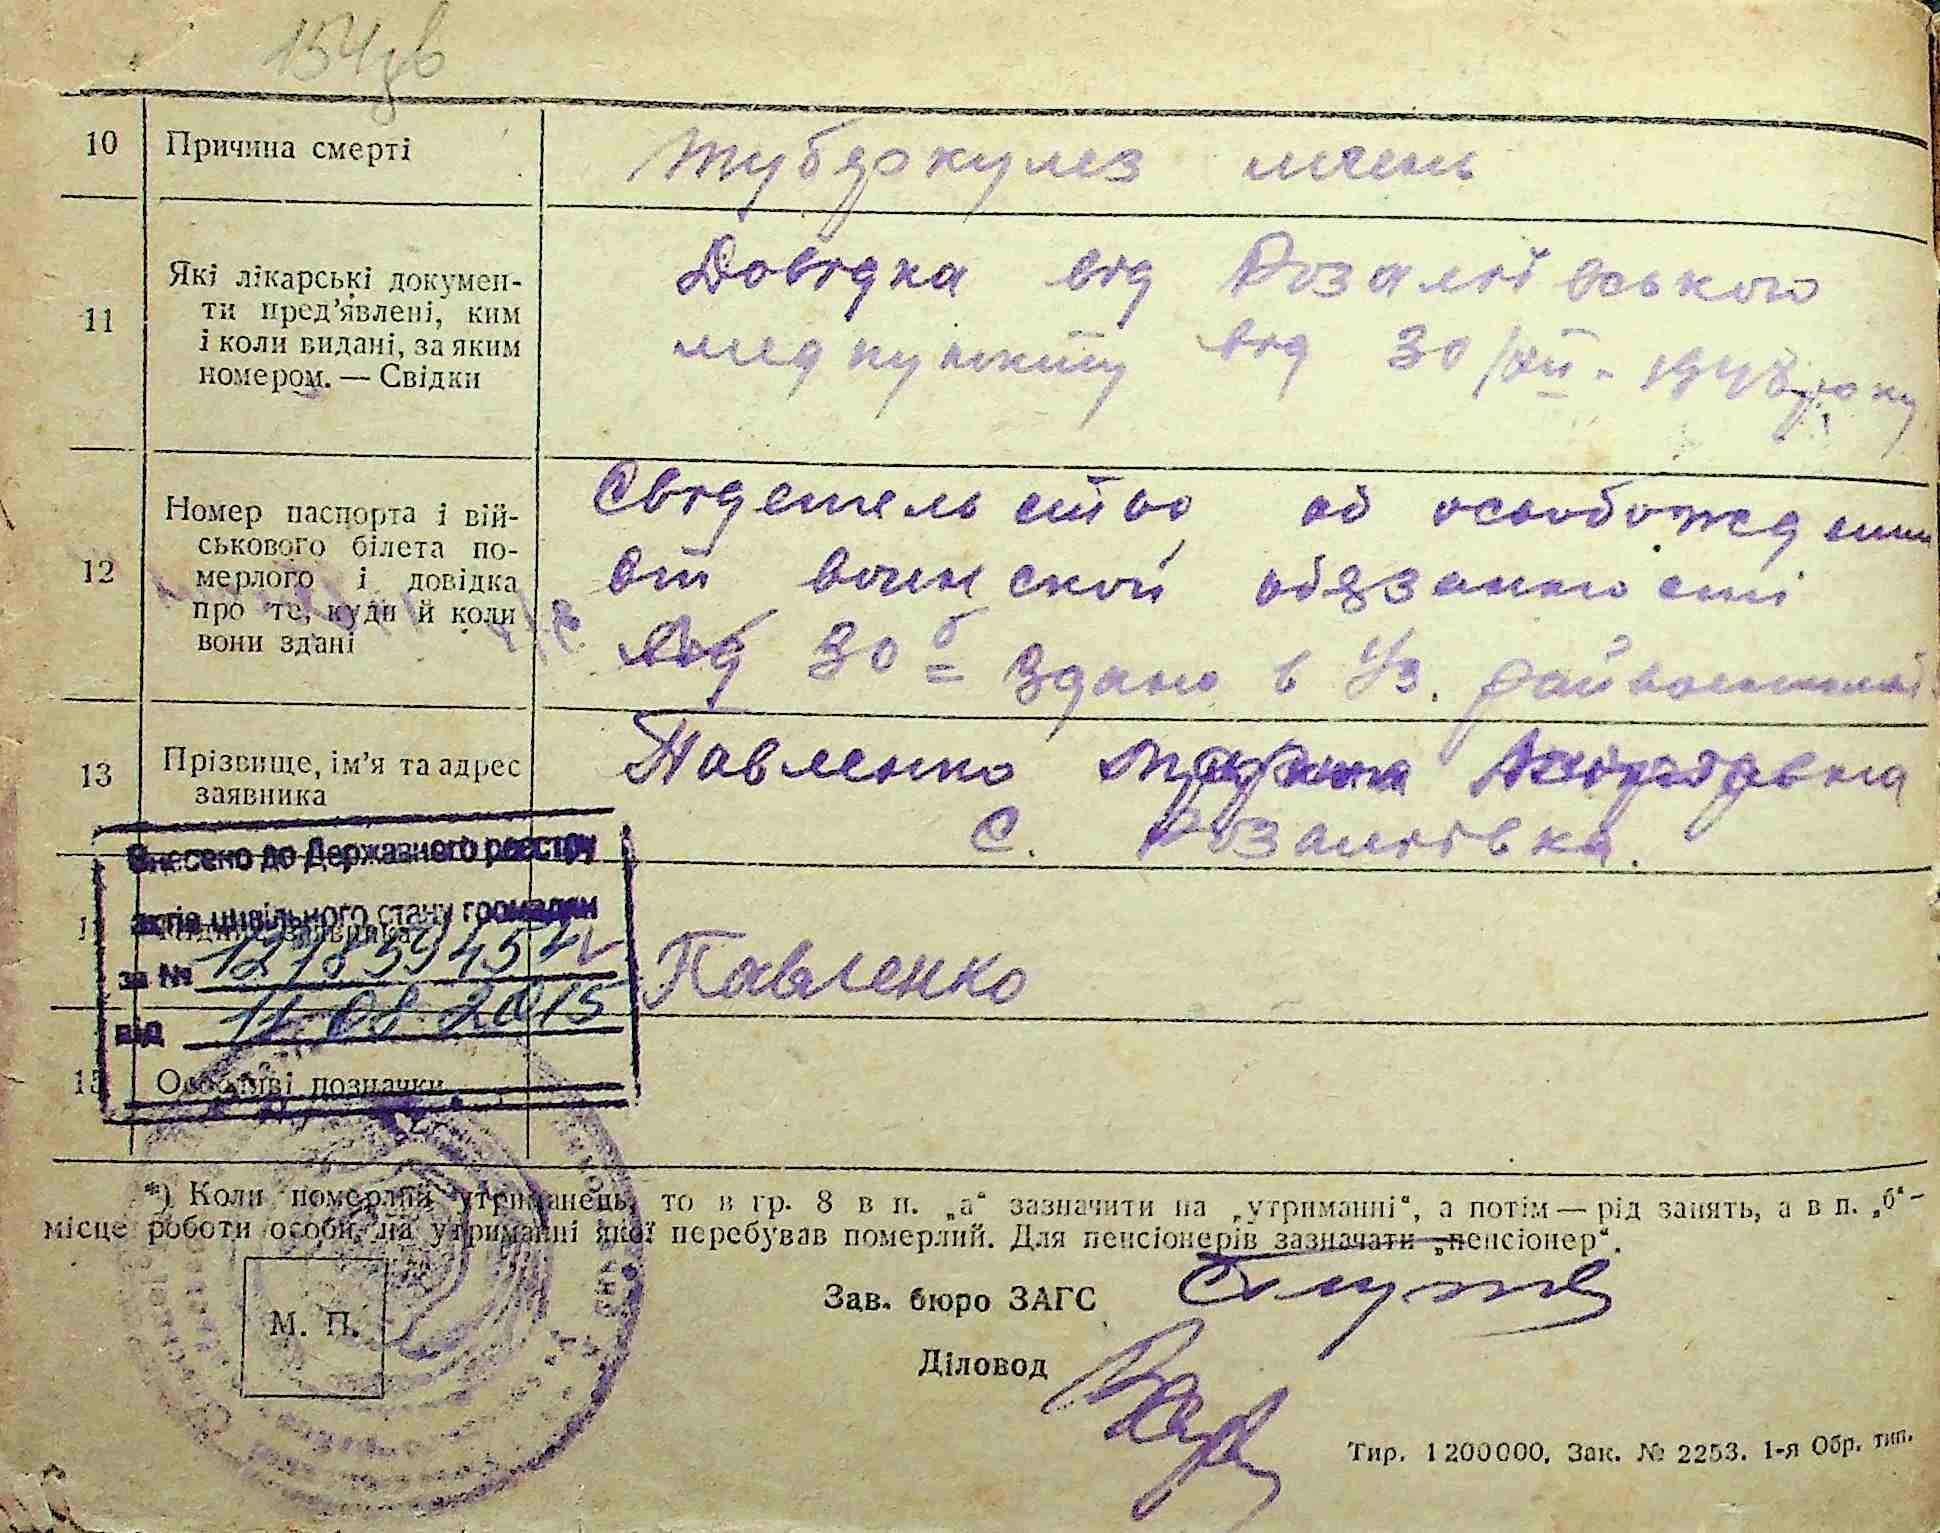 10 Причина смерті
туберкулез лігень
11 Які лікарські докумен-
ти пред'явлені, ким
і коли видані, за яким
номером. — Свідки
Довідка від Розаліївського
медпункту від 30/XII - 1948 року
12 Номер паспорта і вій-
ськового білета по-
мерлого і довідка
про те, куди й коли
вони здані
Свідетельство об освобождении
от воинской обязанности
від 30 б здано в Уз. райвоенкомат
13 Прізвище, ім'я та адрес
заявника
Павленко
с. Розаліївка.
Внесено до Державного реєстру
актів цивільного стану громадян
за №
від 11.08.2015
Підпис заявника
Павленко
15 Особливі позначки
*) Коли померлий утриманець, то в гр. 8 в п. „а“ зазначити на „утриманні“, а потім — рід занять, а в п. „б“ —
місце роботи особи, на утриманні якої перебував померлий. Для пенсіонерів зазначати „пенсіонер“.
М. П.
Зав. бюро ЗАГС
Діловод
Тир. 1200000. Зак. № 2253. 1-я Обр. тип.